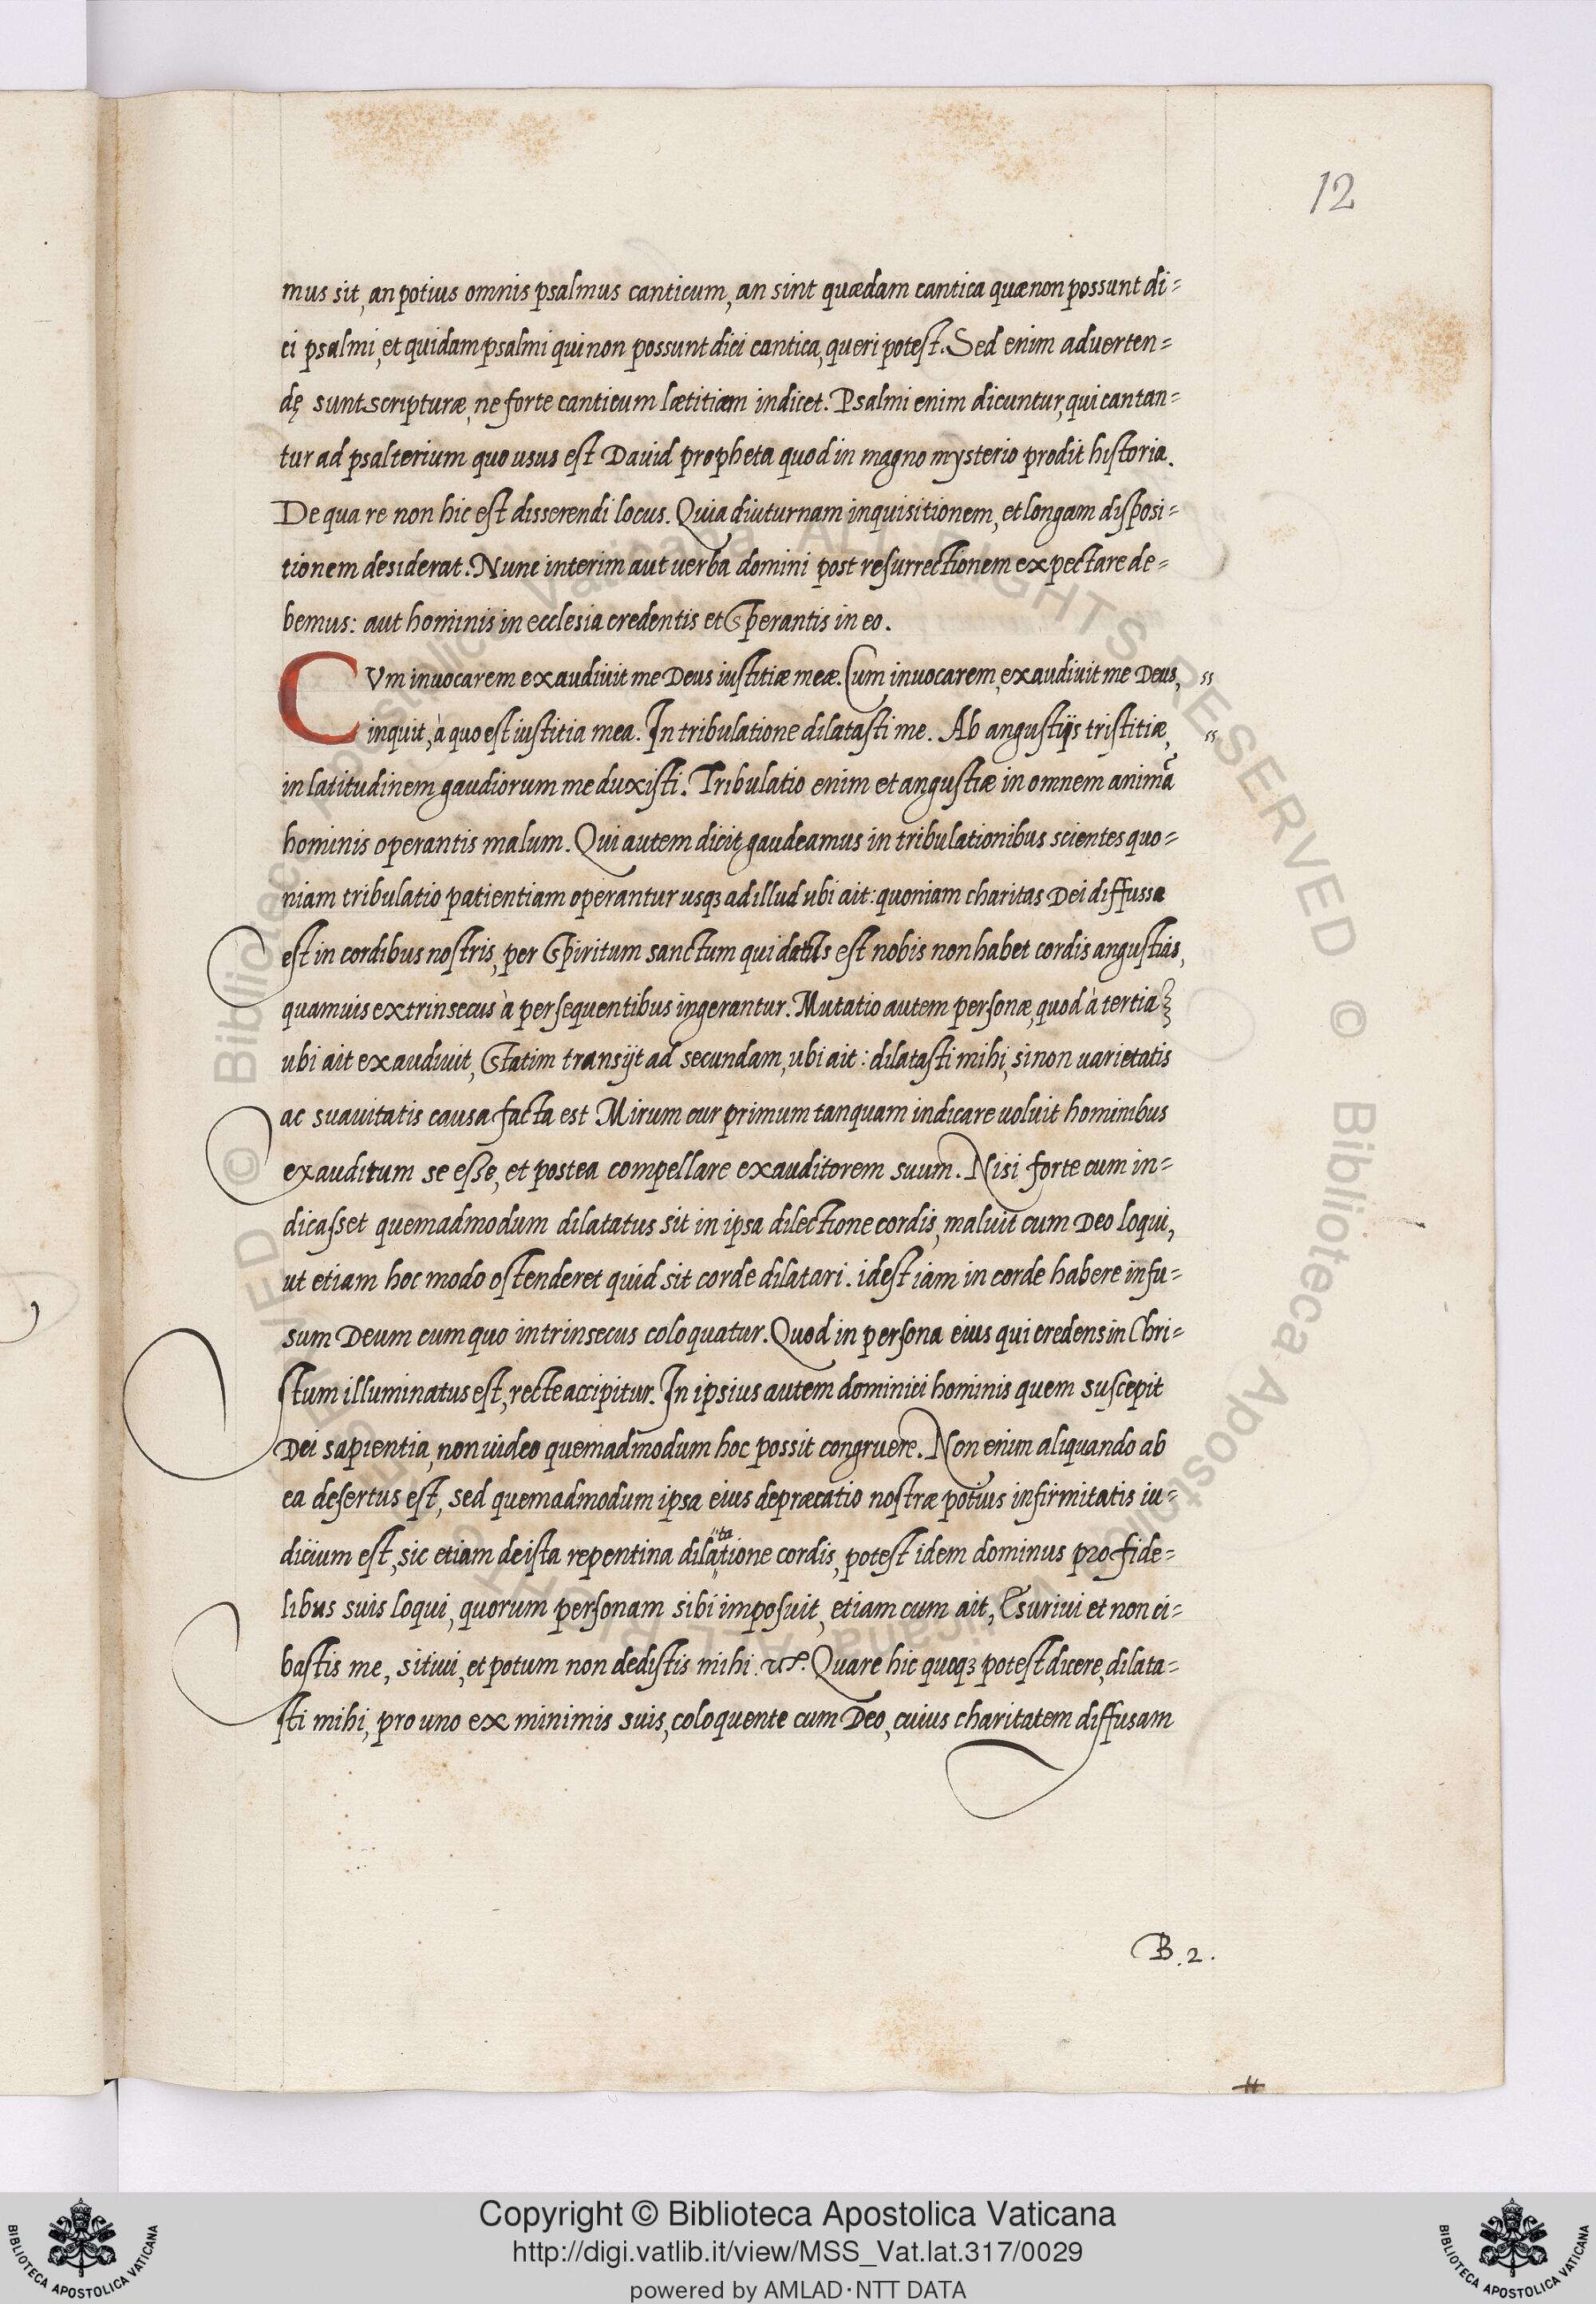 12
mus sit, an potius omnis psalmus canticum, an sint quædam cantica quæ non possunt di=
ci psalmi, et quidam psalmi qui non possunt dici cantica, queri potest. Sed enim aduerten=
dę sunt scripturæ, ne forte canticum lætitiam indicet. Psalmi enim dicuntur, qui cantan=
tur ad psalterium quo usus est Dauid propheta quod in magno mysterio prodit historia.
De qua re non hic est disserendi locus. Quia diuturnam inquisitionem, et longam disposi=
tionem desiderat. Nunc interim aut uerba domini post resurrectionem expectare de=
bemus: aut hominis in ecclesia credentis et sperantis in eo.
CVm inuocarem exaudiuit me Deus iustitiæ meæ. Cum inuocarem, exaudiuit me Deus, "
inquit, à quo est iustitia mea. In tribulatione dilatasti me. Ab angustijs tristitiæ, "
in latitudinem gaudiorum me duxisti. Tribulatio enim et angustiæ in omnem animā
hominis operantis malum. Qui autem dicit gaudeamus in tribulationibus scientes quo=
niam tribulatio patientiam operantur usqꝫ ad illud ubi ait: quoniam charitas Dei diffussa
est in cordibus nostris, per spiritum sanctum qui datus est nobis non habet cordis angustias,
quamuis extrinsecus à persequentibus ingerantur. Mutatio autem personæ, quod à tertia
ubi ait exaudiuit, statim transijt ad secundam, ubi ait: dilatasti mihi, si non uarietatis
ac suauitatis causa facta est Mirum cur primum tanquam indicare uoluit hominibus
exauditum se esse, et postea compellare exauditorem suum. Nisi forte cum in=
dicasset quemadmodum dilatatus sit in ipsa dilectione cordis, maluit cum Deo loqui,
ut etiam hoc modo ostenderet quid sit corde dilatari. idest iam in corde habere infu=
sum Deum cum quo intrinsecus coloquatur. Quod in persona eius qui credens in Chri=
stum illuminatus est, recte accipitur. In ipsius autem dominici hominis quem suscepit
Dei sapientia, non uideo quemadmodum hoc possit congruere. Non enim aliquando ab
ea desertus est, sed quemadmodum ipsa eius depræcatio nostræ potius infirmitatis iu=
ta
dicium est, sic etiam de ista repentina dilatione cordis, potest idem dominus pro fide=
libus suis loqui, quorum personam sibi imposuit, etiam cum ait, Esuriui et non ci=
bastis me, sitiui, et potum non dedistis mihi. &c. Quare hic quoqꝫ potest dicere, dilata=
sti mihi, pro uno ex minimis suis, coloquente cum Deo, cuius charitatem diffusam
B.2.
Copyright © Biblioteca Apostolica Vaticana
http://digi.vatlib.it/view/MSS_Vat.lat.317/0029
powered by AMLAD·NTT DATA
BIBLIOTECA APOSTOLICA VATICANA
BIBLIOTECA APOSTOLICA VATICANA